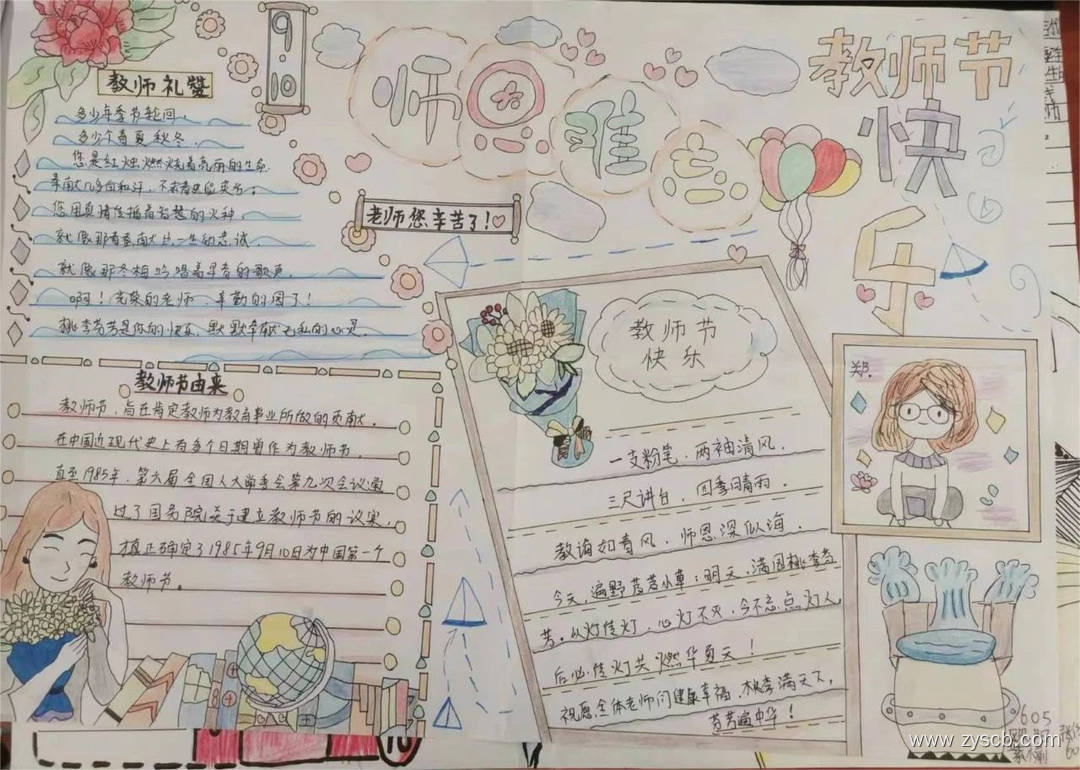 9.10
师恩难忘
教师节
快
乐
教师礼赞
多少年季节轮回
多少个春夏秋冬
您是红烛燃烧着亮丽的生命
奉献几多血和汗，不求青史留英名
您用真情传播着智慧的火种
就像那春蚕献出一生的忠诚
就像那冬梅吟唱着早春的歌声
啊！光荣的老师，辛勤的园丁！
桃李芬芳是你的快乐，默默奉献无私的心是
老师您辛苦了！
教师节由来
教师节，旨在肯定教师为教育事业所做的贡献。
在中国近现代史上有多个日期曾作为教师节，
直至1985年，第六届全国人大常委会第九次会议通
过了国务院关于建立教师节的议案，
才真正确定了1985年9月10日为中国第一个
教师节。
教师节
快乐
一支粉笔，两袖清风，
三尺讲台，四季晴雨，
教诲如春风，师恩深似海，
今天，遍野芳芳小草；明天，满园桃李芬
芳。以灯传灯，心灯不灭，今不忘点灯人，
后必传灯共燃华夏天！
祝愿全体老师们健康幸福，桃李满天下，
芳芳遍中华！
郑
605
www.zyscb.com